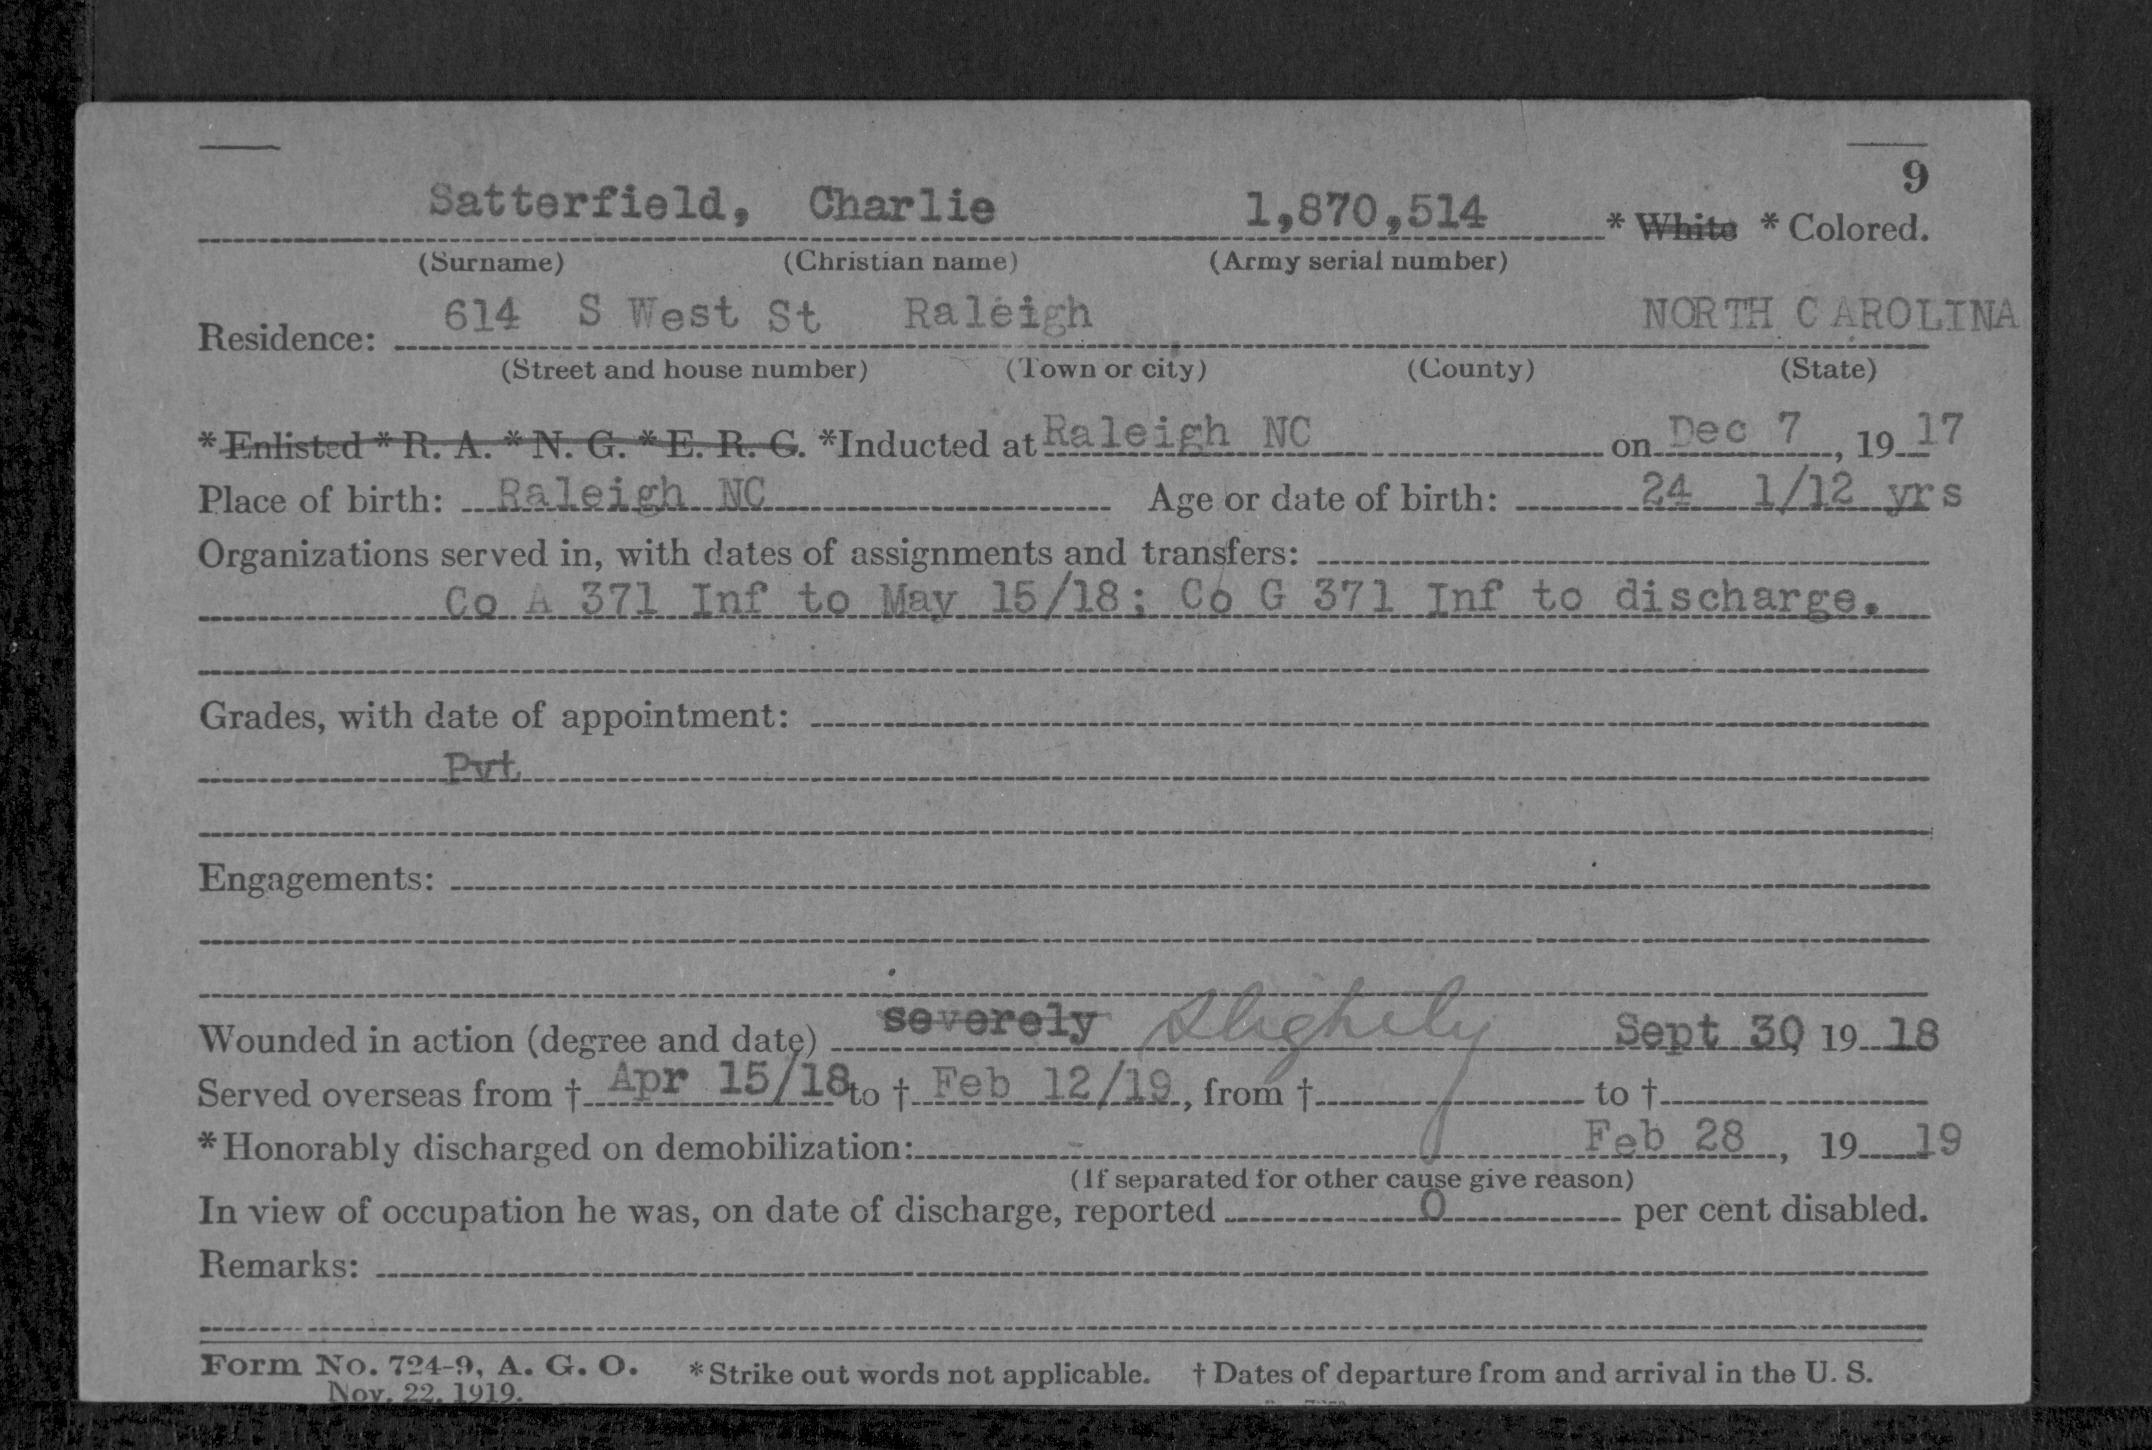 9
Satterfield, Charlie 1,870,514 * White * Colored.
(Surname) (Christian name) (Army serial number)
Residence: 614 S West St Raleigh NORTH CAROLINA
(Street and house number) (Town or city) (County) (State)
*Enlisted *R. A. *N. G. *E. R. C. *Inducted at Raleigh NC on Dec 7, 1917
Place of birth: Raleigh NC Age or date of birth: 24 1/12 yrs
Organizations served in, with dates of assignments and transfers:
Co A 371 Inf to May 15/18; Co G 371 Inf to discharge.
Grades, with date of appointment:
Pvt
Engagements:
Wounded in action (degree and date) severely Slightly Sept 30 1918
Served overseas from † Apr 15/18 to † Feb 12/19, from † to †
*Honorably discharged on demobilization: - Feb 28, 1919
(If separated for other cause give reason)
In view of occupation he was, on date of discharge, reported 0 per cent disabled.
Remarks:
Form No. 724-9, A. G. O. *Strike out words not applicable. † Dates of departure from and arrival in the U. S.
Nov. 22, 1919.